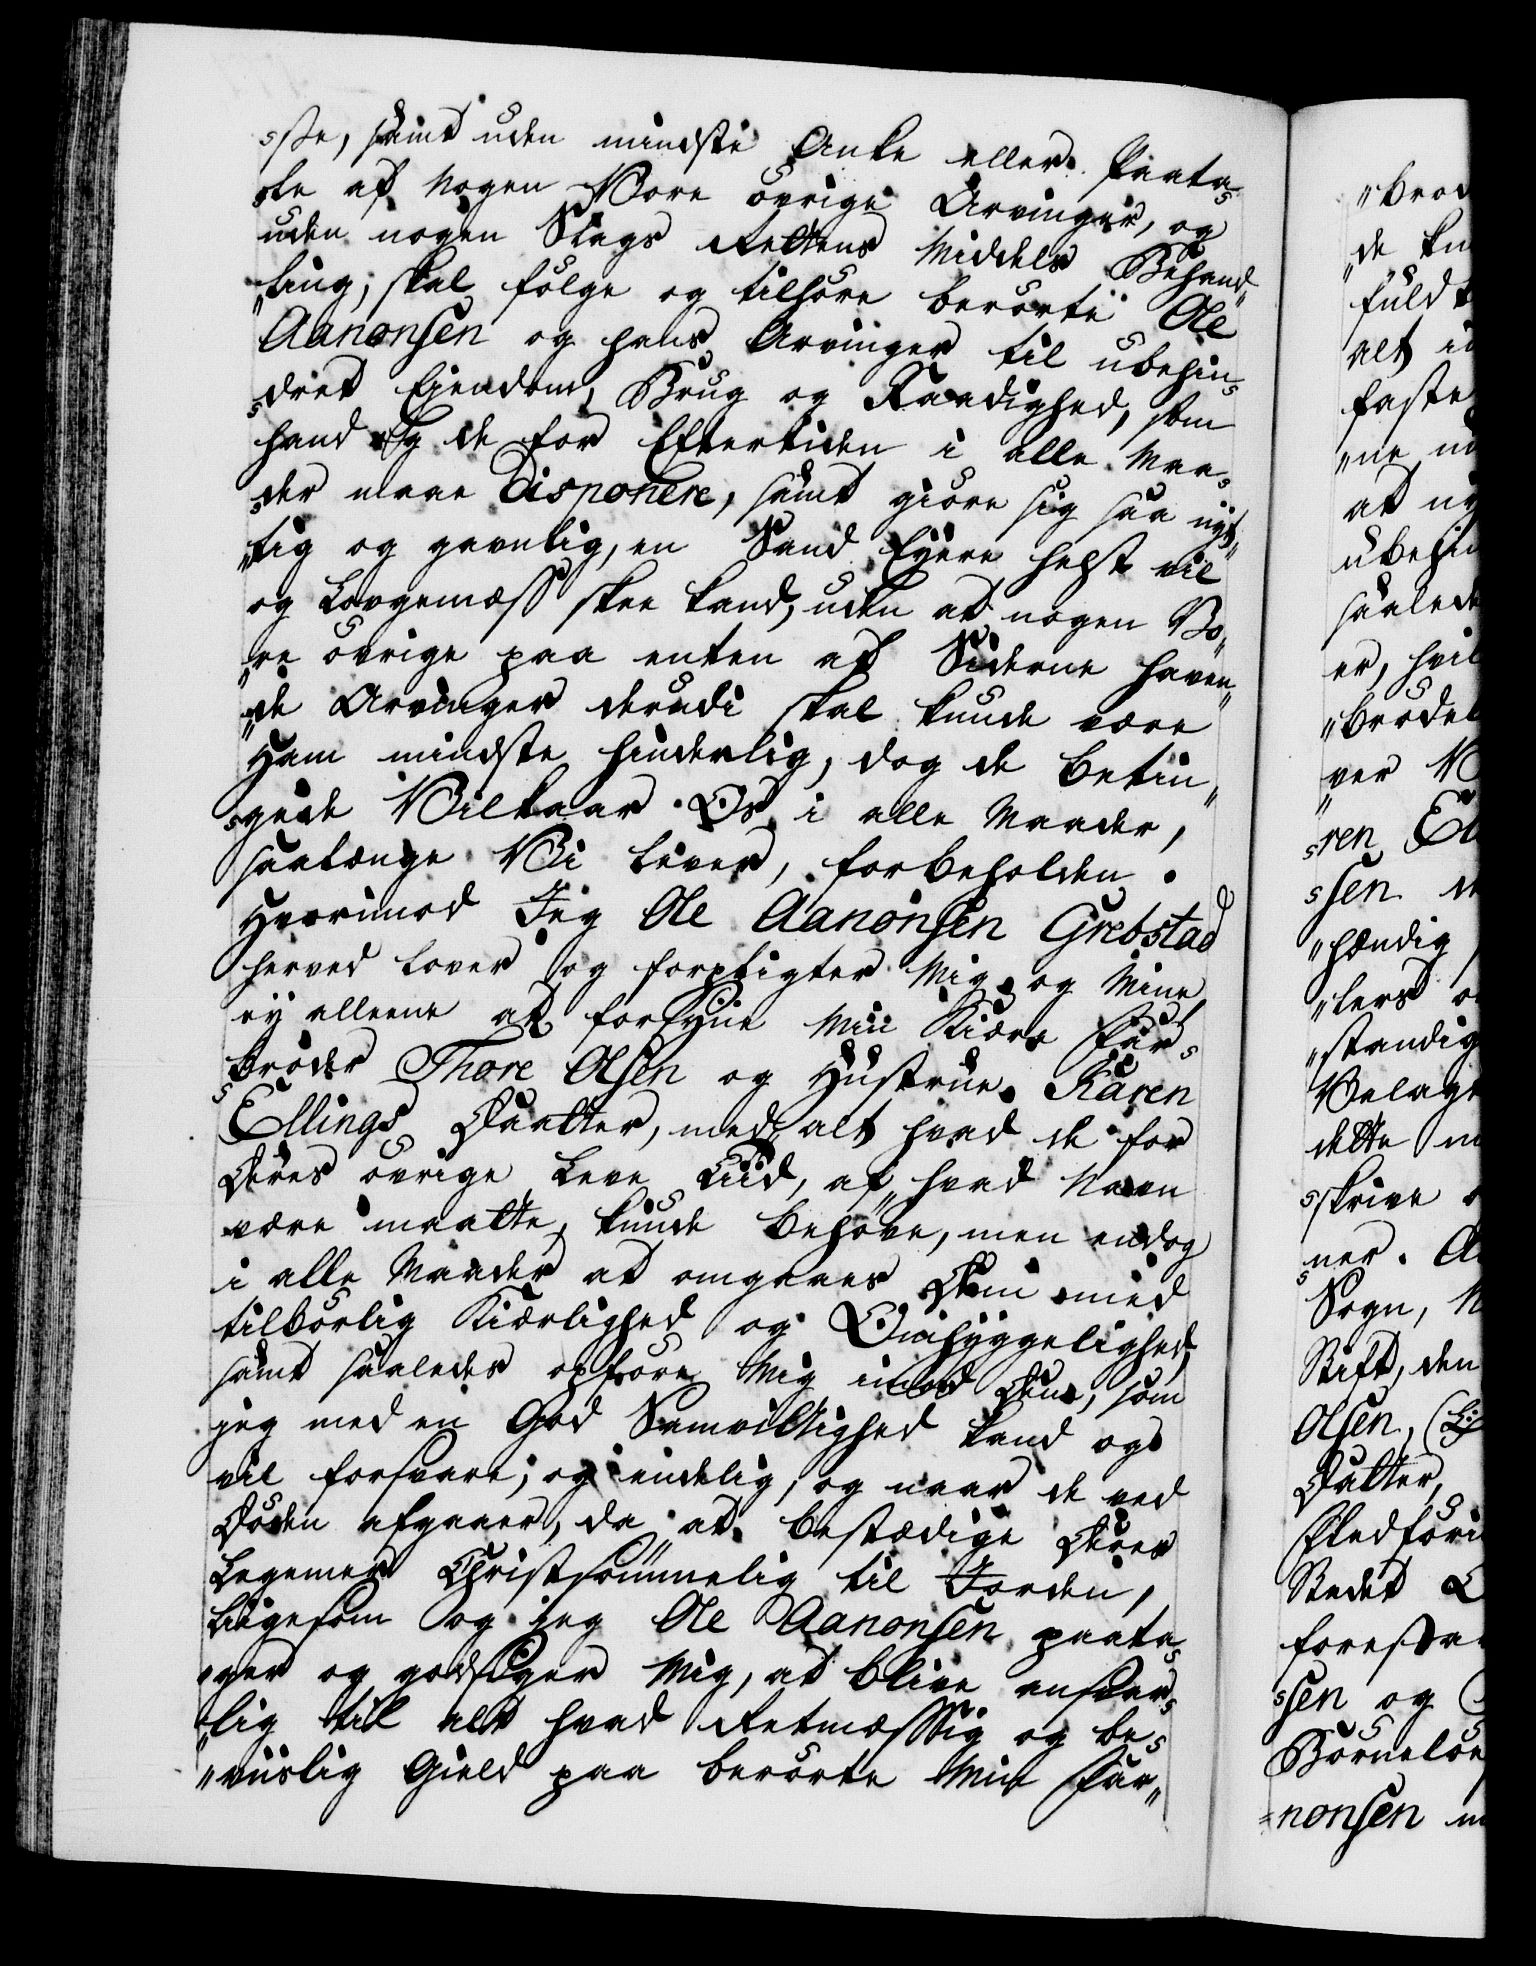 ste, samt uden mindste Anke eller Paata-
ke af Nogen Vore övrige Arvinger, og
uden nogen Slags Rettens Middels Behand-
ling; skal fölge og tilhöre berörte Ole
Aanonsen og hans Arvinger til ubehin-
dret Eiendom, Brug og Raadighed, som
hand og de for Eftertiden i alle Maa-
der maae Disponere, samt giöre sig saa nyt-
tig og gavnlig, en Sand Eyere helst vil
og Lovgemæss skee kand, uden at nogen Vo-
re övrige paa enten af Siderne haven-
de Arvinger derudi skal kunde være
Ham mindste hinderlig, dog de betin-
gede Vilkaar Os i alle Maader,
saalænge Vi lever, forbeholden.
Hvorimod Jeg Ole Aanonsen Grebstad
herved Lover og forpligter Mig og Mine
ey alleene at forsyne Min Kiære Far-
broder Thore Olsen og Hustrue Karen
Ellings Daatter, med alt hvad de for
Deres övrige Leve Tiid, af hvad Navn
være maatte, kunde behöve, men endog
i alle Maader at omgaaes Dem med
tilbörlig Kiærlighed og Omhyggelighed,
samt saaledes opföre Mig imod Dem, som
jeg med en God Samvittighed kand og
vil forsvare; og endelig, og naar de ved
Döden afgaaer, da at bestædige Deres
Legemer Christsömmelig til Jorden,
Ligesom og jeg Ole Aanonsen paata-
ger og godsiger Mig, at blive ansvar-
lig til alt hvad Retmæssig og be-
viislig Gield paa berörte Min Far-
brod
de ku
fuldt
alt i
faste
ne
at ny
ubehin
saalede
er, hvil
brodel
ver
ren El
sen
hændig
lers
standig
Velagt
dette
skrive
ner. A
Sogn,
Stift, den
Olsen,
Datter,
Fledföri
Stedet
foresta
sen og
Börnelös
nonsen